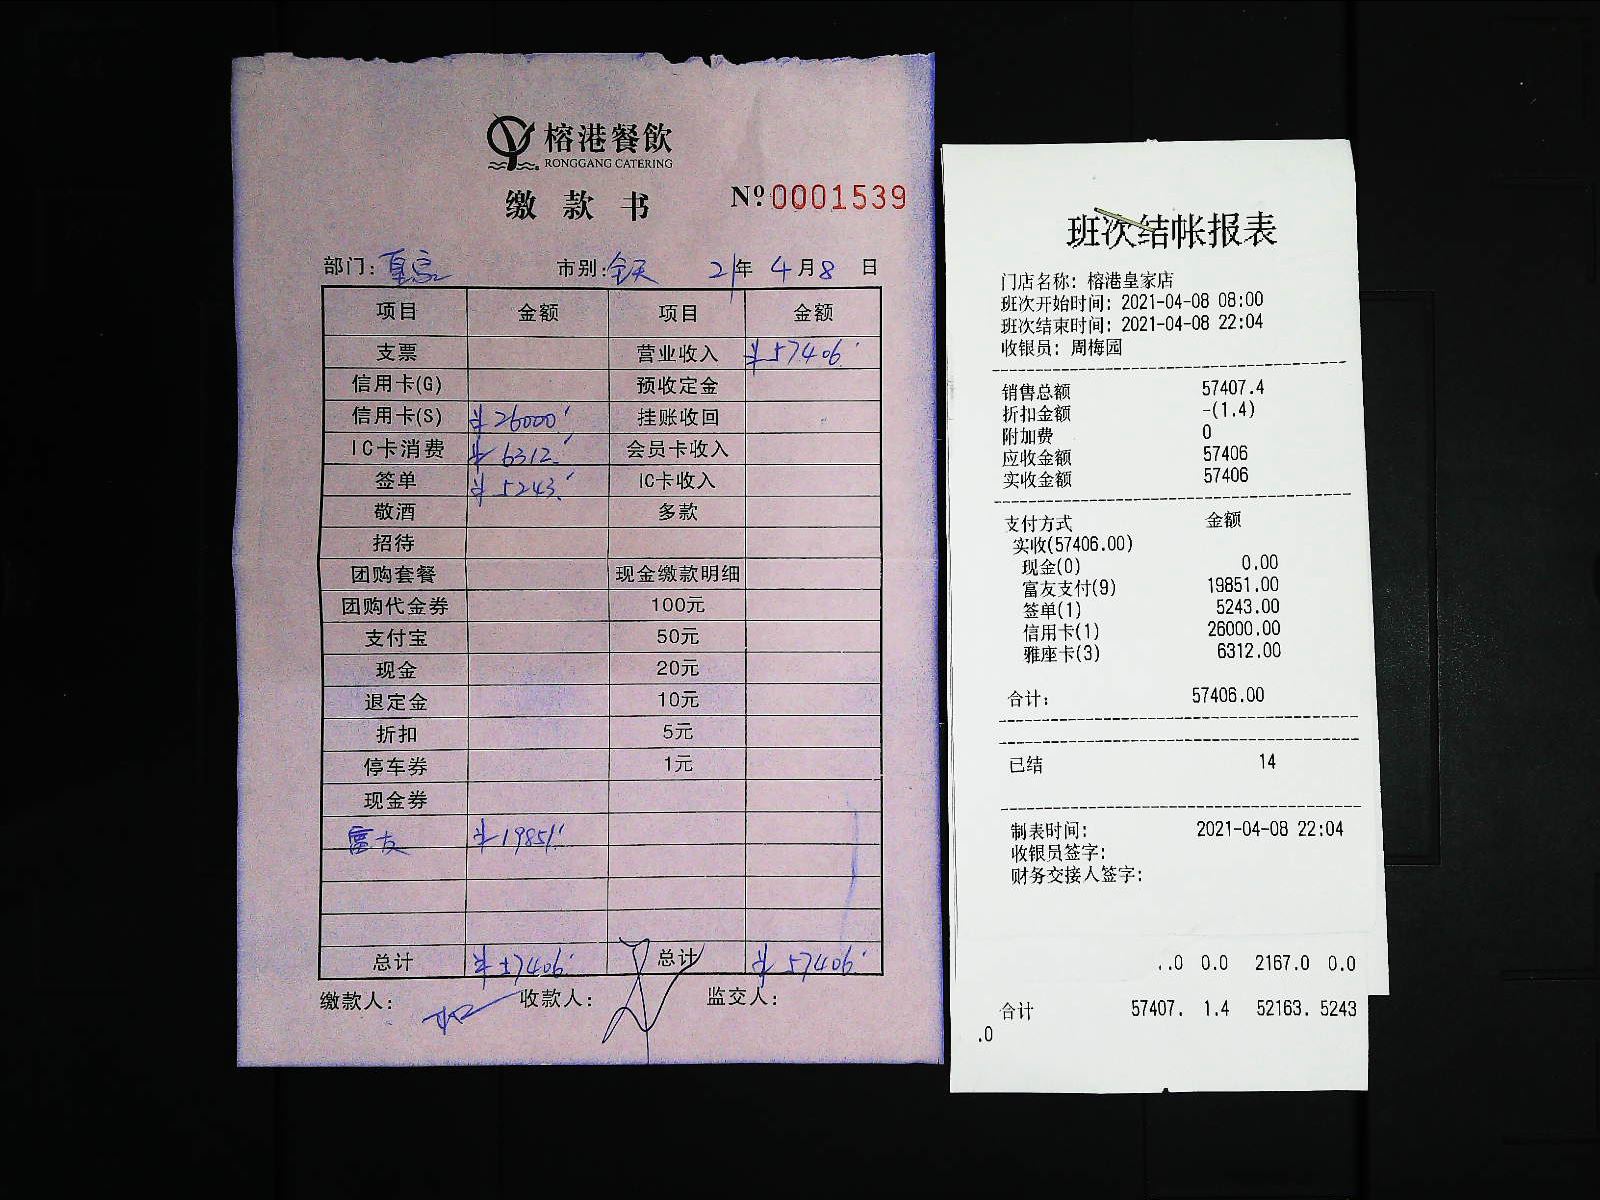 榕港餐飲
RONGGANG CATERING
缴款书 №0001539
部门: 皇家 市别: 全天 21年 4月8日
项目 金额 项目 金额
支票 营业收入 ¥57406.
信用卡(G) 预收定金
信用卡(S) ¥26000. 挂账收回
IC卡消费 ¥6312. 会员卡收入
签单 ¥5243. IC卡收入
敬酒 多款
招待
团购套餐 现金缴款明细
团购代金券 100元
支付宝 50元
现金 20元
退定金 10元
折扣 5元
停车券 1元
现金券
富友 ¥19851.
总计 ¥57406. 总计 ¥57406.
缴款人: 收款人: 监交人:
班次结帐报表
门店名称: 榕港皇家店
班次开始时间: 2021-04-08 08:00
班次结束时间: 2021-04-08 22:04
收银员: 周梅园
销售总额 57407.4
折扣金额 -(1.4)
附加费 0
应收金额 57406
实收金额 57406
支付方式 金额
实收(57406.00)
现金(0) 0.00
富友支付(9) 19851.00
签单(1) 5243.00
信用卡(1) 26000.00
雅座卡(3) 6312.00
合计: 57406.00
已结 14
制表时间: 2021-04-08 22:04
收银员签字:
财务交接人签字:
.0 0.0 2167.0 0.0
合计 57407. 1.4 52163. 5243
.0